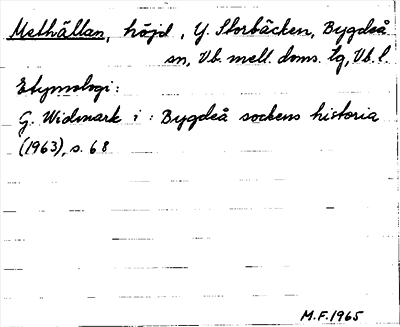 Methällan, höjd, Y. Storbäcken, Bygdeå
sn, Vb. mell. doms. tg, Vb. l.
Etymologi:
G. Widmark i: Bygdeå sockens historia
(1963), s. 68
M.F. 1965